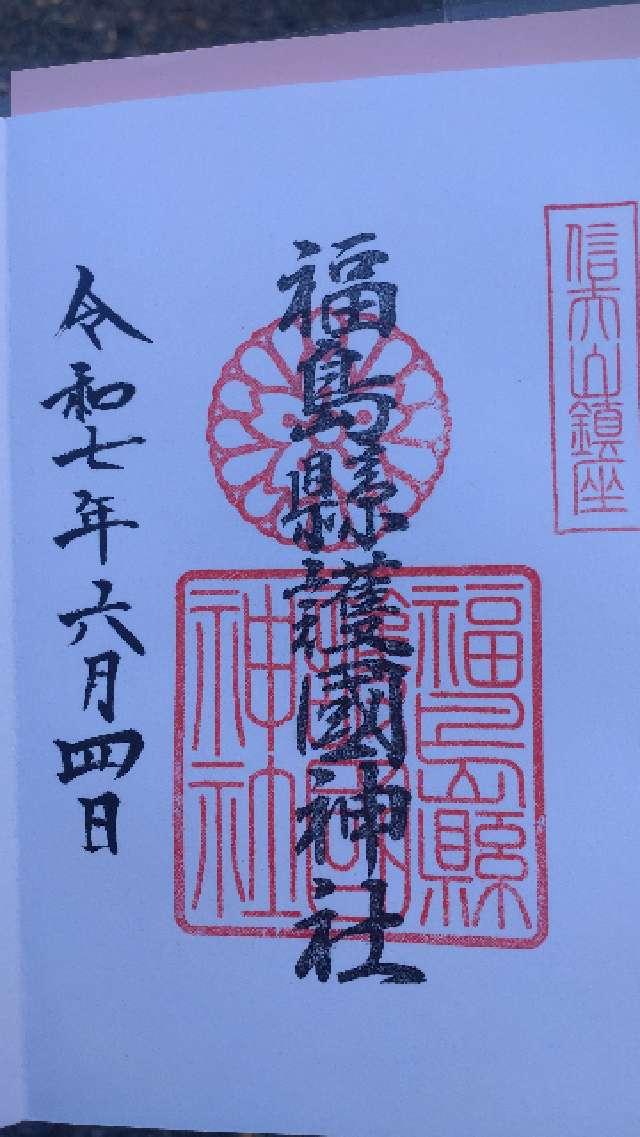 信夫山鎮座
福島縣護國神社
福島縣
護國
神社
令和七年六月四日